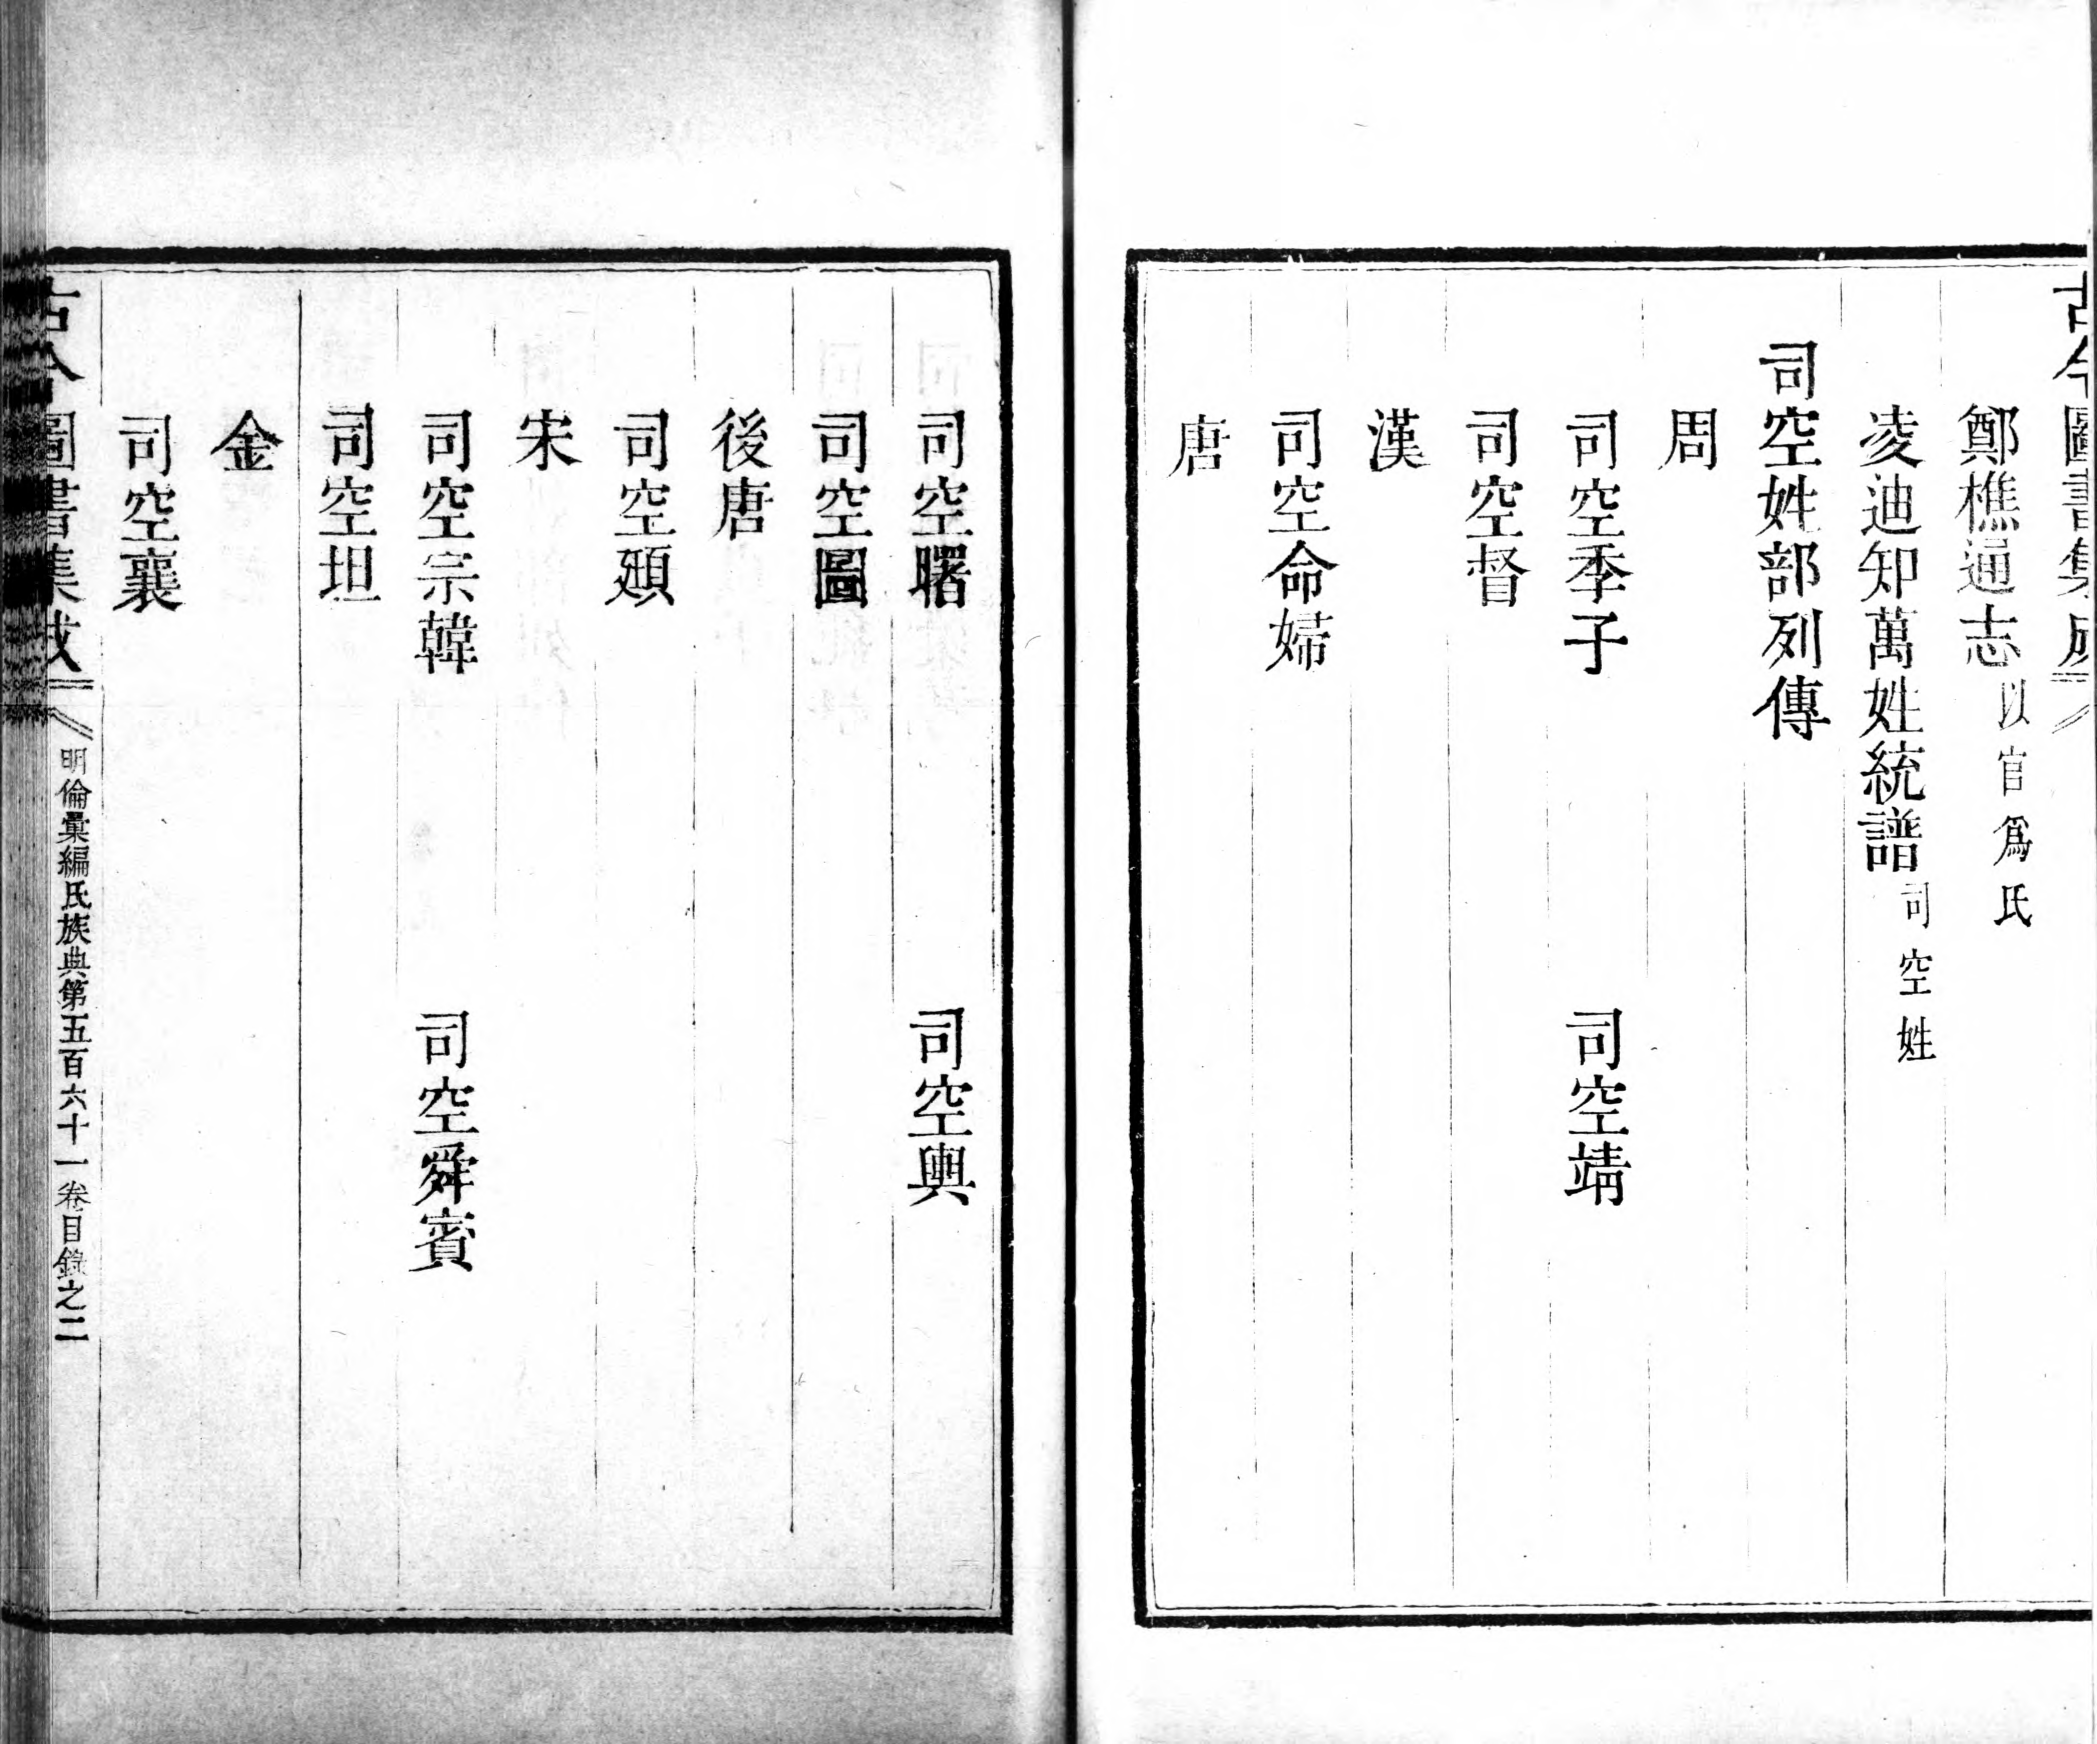 古今圖書集成
鄭樵通志以官為氏
凌迪知萬姓統譜司空姓
司空姓部列傳
周
司空季子 司空靖
司空督
漢
司空命婦
唐
司空曙 司空輿
司空圖
後唐
司空頲
宋
司空宗韓 司空舜賓
司空坦
金
司空襄
古今圖書集成 明倫彙編氏族典第五百六十一卷目錄之二